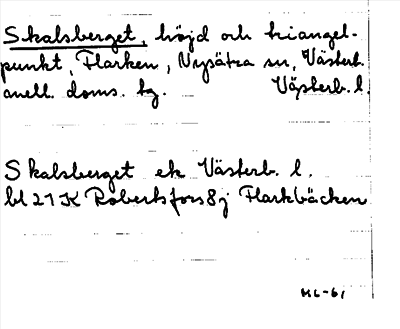 Skalsberget, höjd och triangel-
punkt, Flarken, Nysätra sn, Västerb.
mell. doms. tg. Västerb. l.
Skalsberget ek Västerb. l.
bl 21 K Robertsfors 8j Flarkbäcken
ML-61